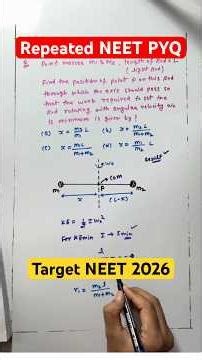 Repeated NEET PYQ
Q. Point masses m₁ & m₂, length of Rod = L
(light Rod)
Find the position of point P on this Rod
through which the axis should pass so
that the work required to set the
Rod rotating with angular velocity ω₀
is minimum is given by!
(a) x = m₁/m₂ L (b) x = m₂/m₁ L
(c) x = m₂L/m₁+m₂ (d) x = m₁L/m₁+m₂
ω₀
COM
m₁ P m₂
x (L-x)
KE = ½ I ω₀²
For KEmin I → Imin
Target NEET 2026
r₁ = m₂l/m₁+m₂